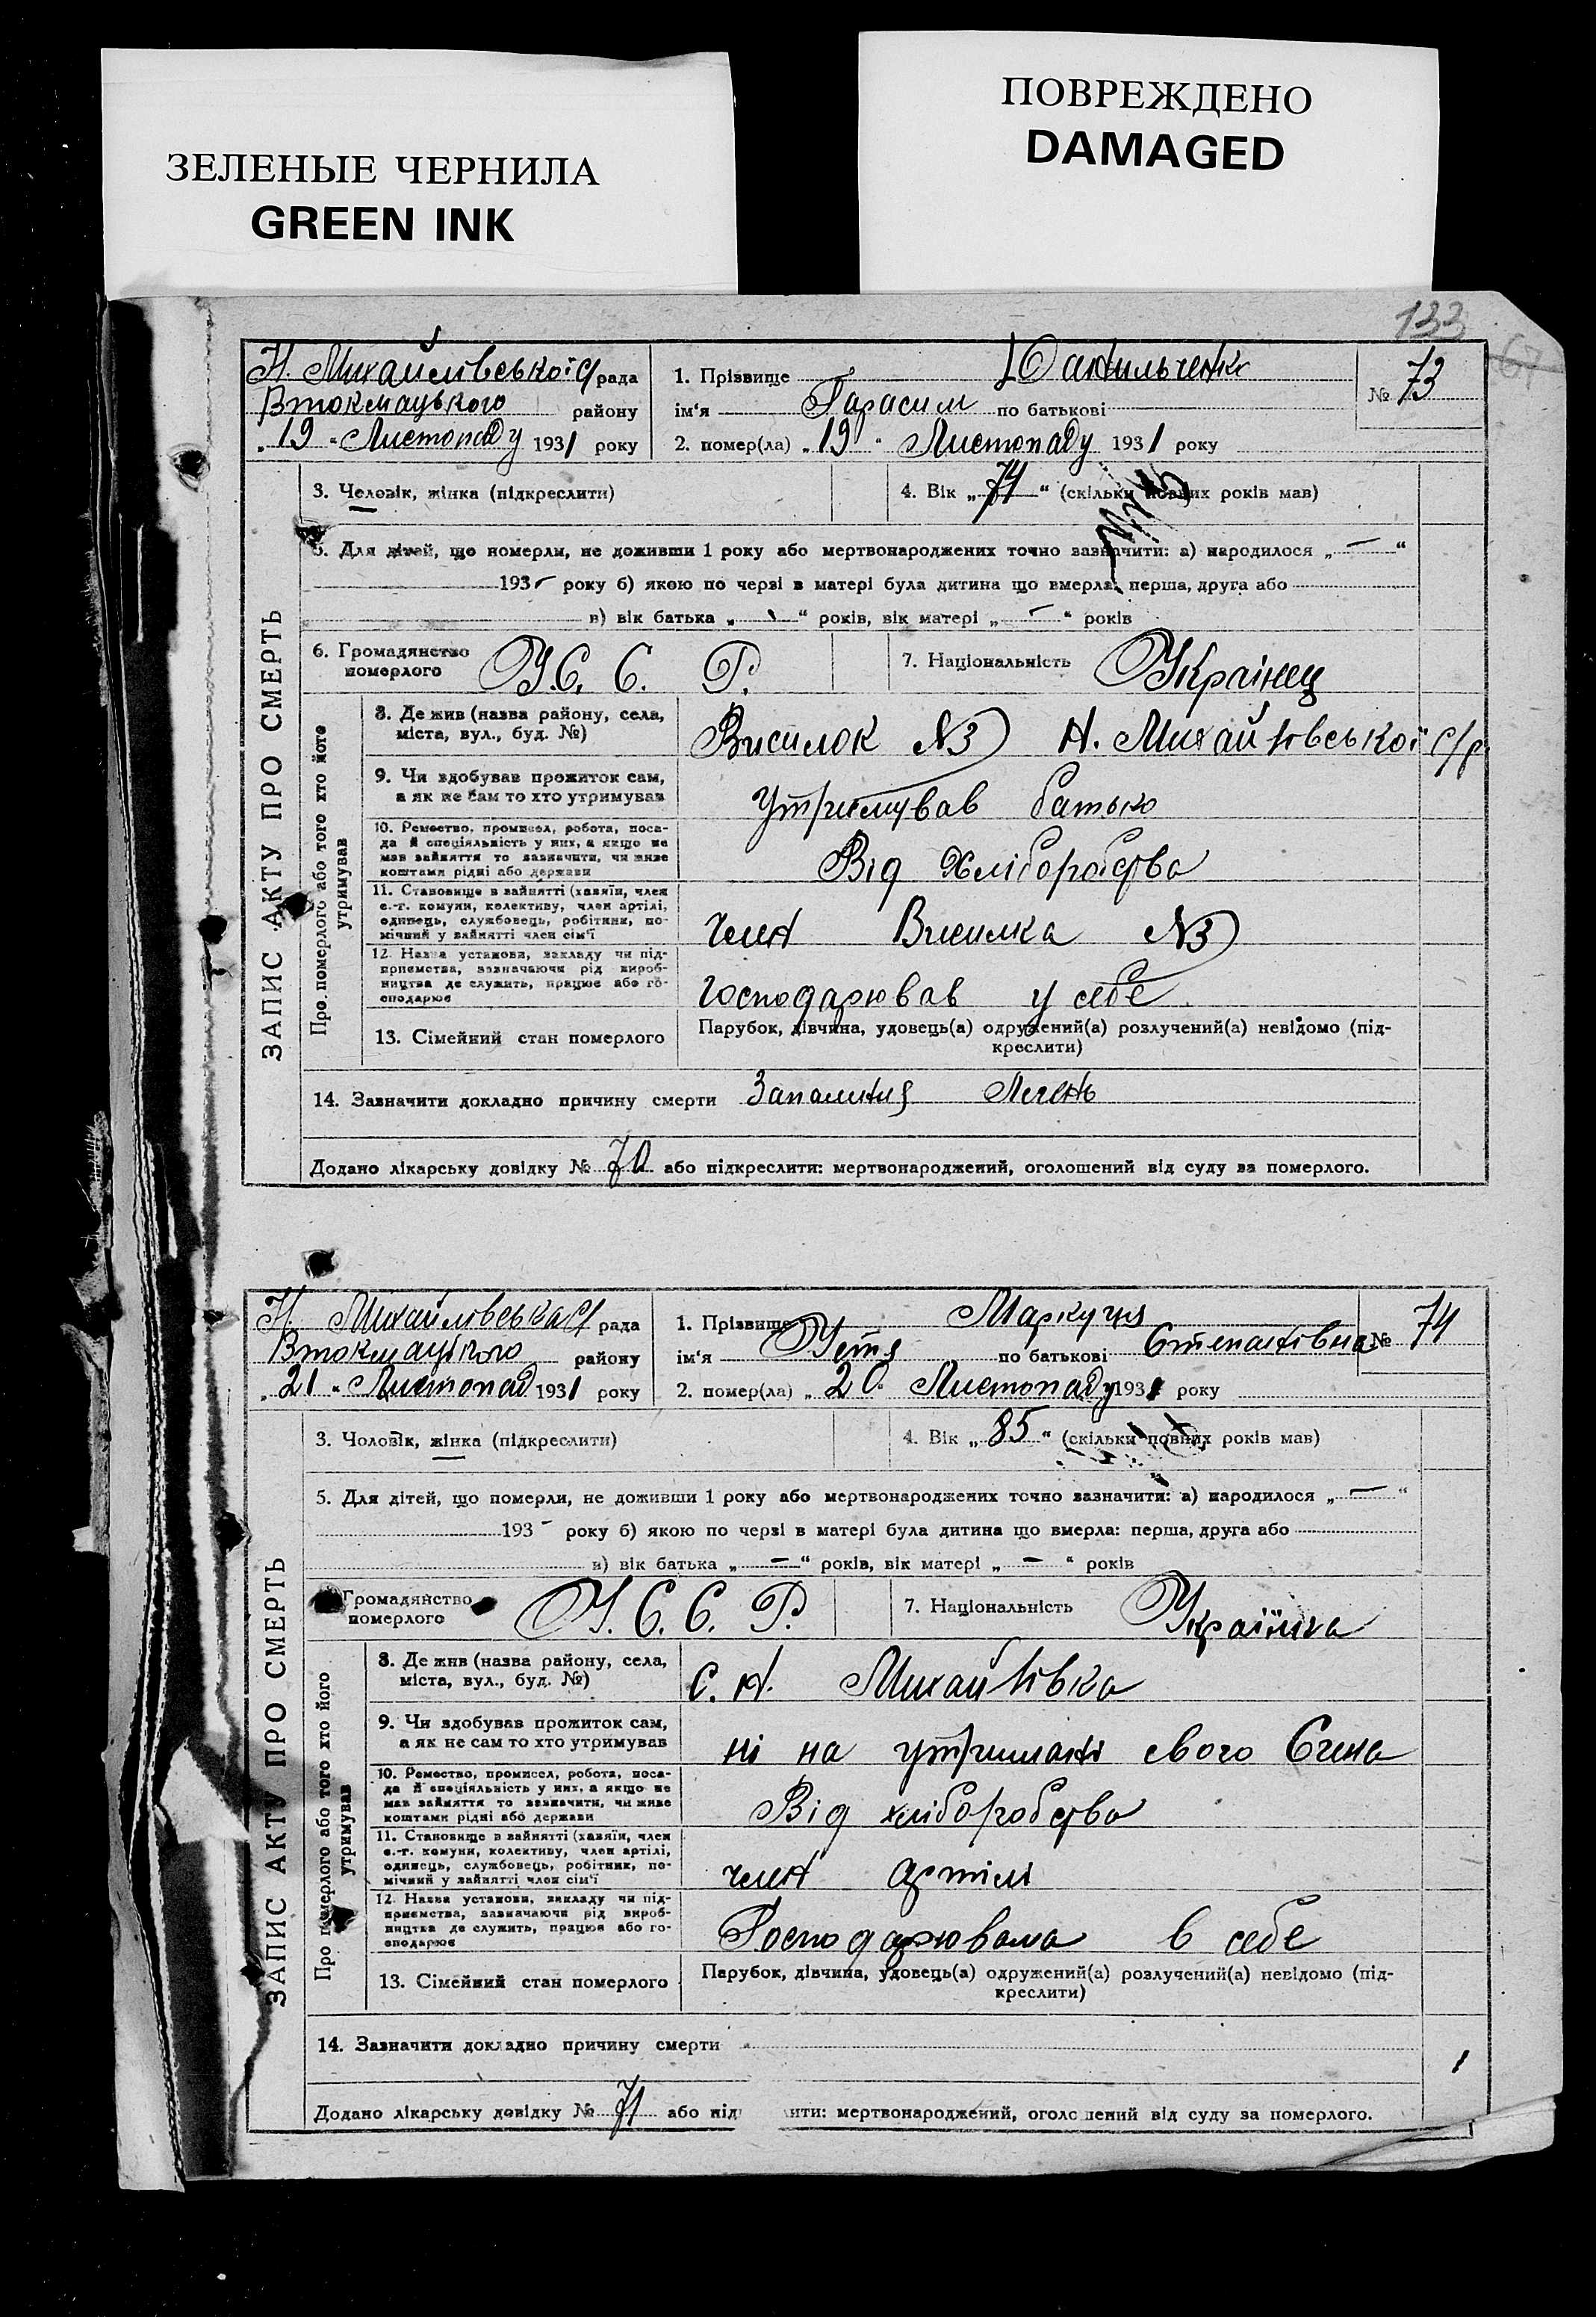 ЗЕЛЕНЫЕ ЧЕРНИЛА
GREEN INK
ПОВРЕЖДЕНО
DAMAGED
133
67
ЗАПИС АКТУ ПРО СМЕРТЬ
Н. Михайлівської с/рада
Втокмацького району
„19“ Листопаду 1931 року
1. Прізвище Данильченко
ім‘я Гарасим по батькові
2. помер(ла) „19“ Листопаду 1931 року
№ 73
3. Чоловік, жінка (підкреслити)
4. Вік „74“ (скільки повних років мав)
5. Для дітей, що померли, не доживши 1 року або мертвонароджених точно зазначити: а) народилося „—“
193- року б) якою по черзі в матері була дитина що вмерла: перша, друга або
в) вік батька „-“ років, вік матері „-“ років
6. Громадянство померлого У.С.С.Р.
7. Національність Українец
Про померлого або того хто його утримував
8. Де жив (назва району, села, міста, вул., буд. №)
Висилок №3 Н. Михайлівської с/р
9. Чи здобував прожиток сам, а як не сам то хто утримував
утримував батько
10. Ремество, промисел, робота, посада й спеціяльність у них, а якщо не мав зайняття то зазначити, чи живе коштами рідні або держави
Від Хліборобства
11. Становище в зайнятті (хазяїн, член с.-г. комуни, колективу, член артілі, одинець, службовець, робітник, помічний у зайнятті член сім‘ї
член Висилка №3
12. Назва установи, закладу чи підприємства, зазначаючи рід виробництва де служить, працює або господарює
господарював у себе
13. Сімейний стан померлого
Парубок, дівчина, удовець(а) одружений(а) розлучений(а) невідомо (підкреслити)
14. Зазначити докладно причину смерти Запалення Легень
Додано лікарську довідку № 70 або підкреслити: мертвонароджений, оголошений від суду за померлого.
ЗАПИС АКТУ ПРО СМЕРТЬ
Н Михайлівська с/рада
Втокмацького району
„21“ Листопад 1931 року
1. Прізвище
ім‘я Устя по батькові Степанівна
2. помер(ла) „20“ Листопаду 1931 року
№ 74
3. Чоловік, жінка (підкреслити)
4. Вік „85“ (скільки повних років мав)
5. Для дітей, що померли, не доживши 1 року або мертвонароджених точно зазначити: а) народилося „—“
193- року б) якою по черзі в матері була дитина що вмерла: перша, друга або
в) вік батька „—“ років, вік матері „—“ років
Громадянство померлого У.С.С.Р.
7. Національність Українка
Про померлого або того хто його утримував
8. Де жив (назва району, села, міста, вул., буд. №)
С. Н. Михайлівка
9. Чи здобував прожиток сам, а як не сам то хто утримував
ні на утримані свого Сина
10. Ремество, промисел, робота, посада й спеціяльність у них, а якщо не мав зайняття то зазначити, чи живе коштами рідні або держави
Від хліборобства
11. Становище в зайнятті (хазяїн, член с.-г. комуни, колективу, член артілі, одинець, службовець, робітник, помічний у зайнятті член сім‘ї
член артілі
12. Назва установи, закладу чи підприємства, зазначаючи рід виробництва де служить, працює або господарює
Господарювала в себе
13. Сімейний стан померлого
Парубок, дівчина, удовець(а) одружений(а) розлучений(а) невідомо (підкреслити)
14. Зазначити докладно причину смерти
1
Додано лікарську довідку № 71 або під ити: мертвонароджений, оголо ений від суду за померлого.